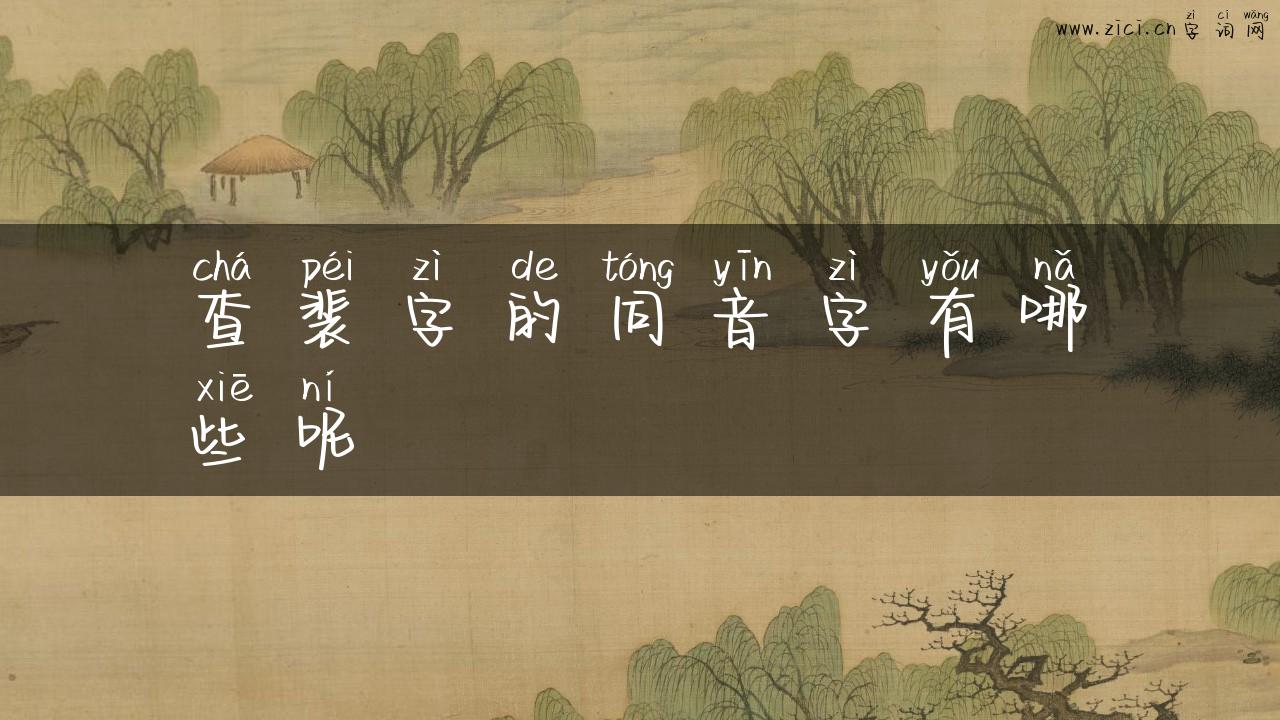 zì cí wǎng
www.zici.cn 字 词 网
chá péi zì de tóng yīn zì yǒu nǎ
查 裴 字 的 同 音 字 有 哪
xiē ní
些 呢